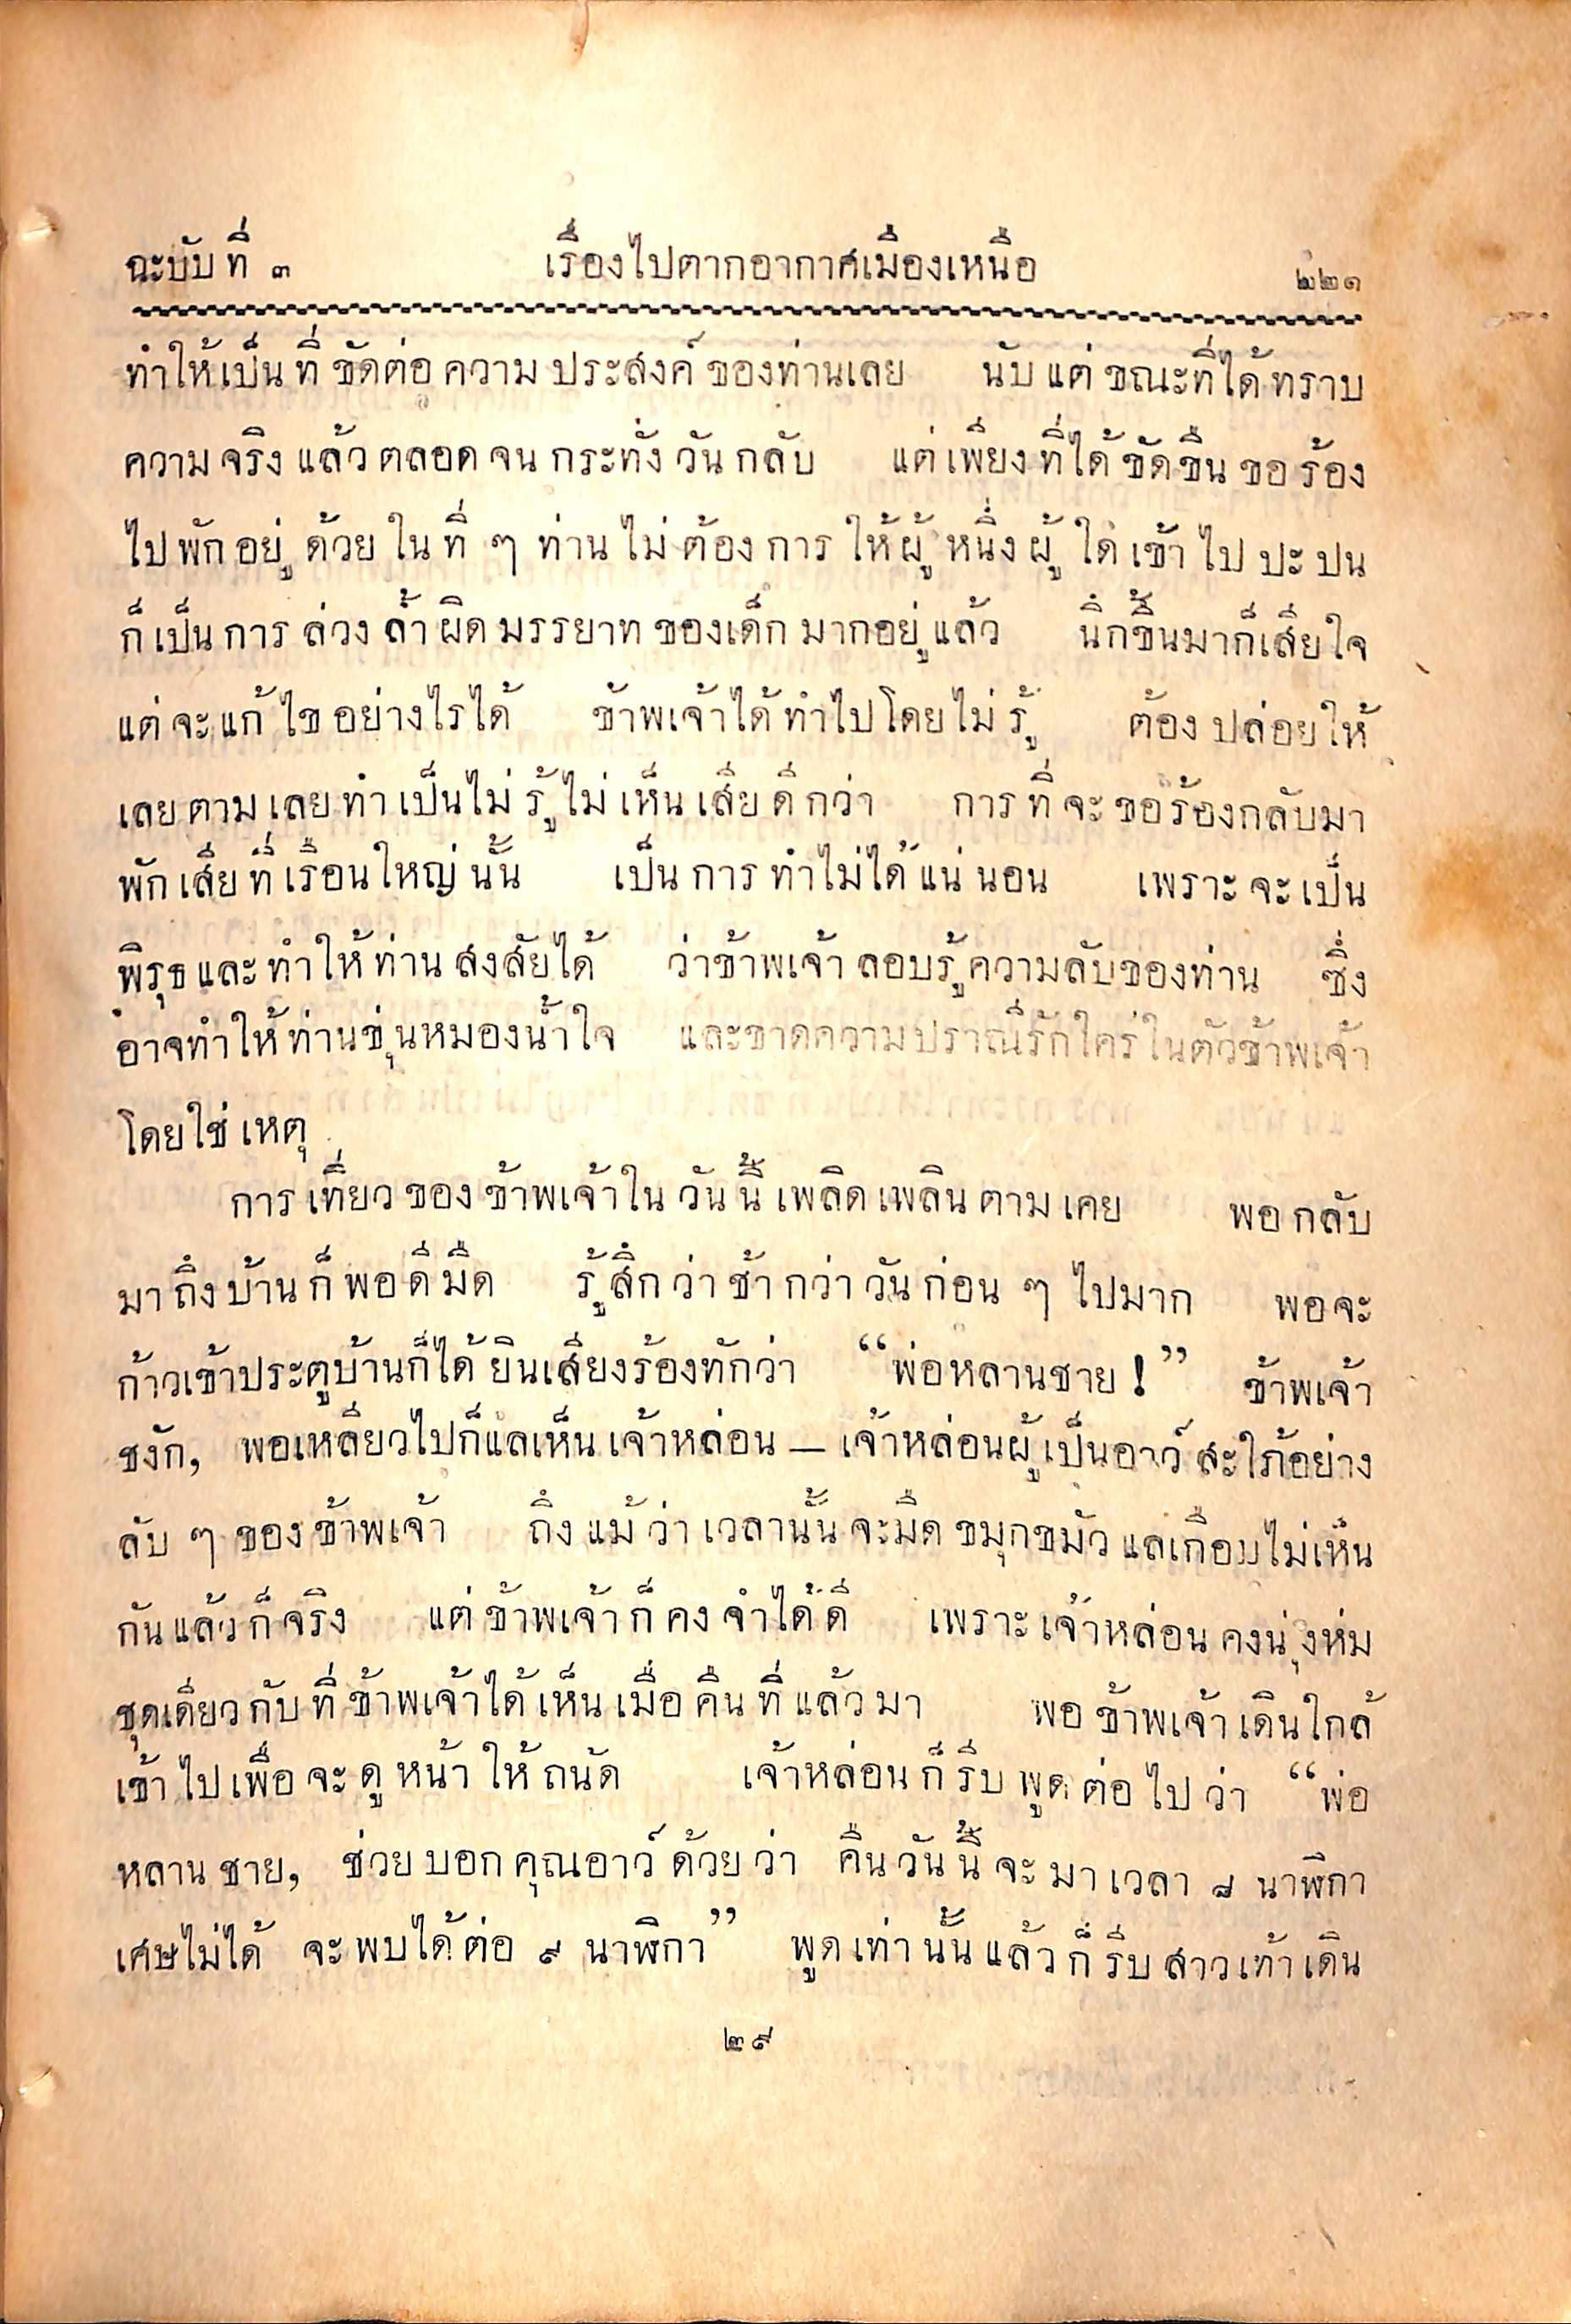 ฉะบับที่ ๓ เรื่องไปตากอากาศเมืองเหนือ ๒๒๑
ทำให้เป็นที่ขัดต่อความประสงค์ของท่านเลย นับแต่ขณะที่ได้ทราบ
ความจริงแล้วตลอดจนกระทั่งวันกลับ แต่เพียงที่ได้ขัดขืนขอร้อง
ไปพักอยู่ด้วยในที่ ๆ ท่านไม่ต้องการให้ผู้หนึ่งผู้ใดเข้าไปปะปน
ก็เป็นการล่วงล้ำผิดมรรยาทของเด็กมากอยู่แล้ว นึกขึ้นมาก็เสียใจ
แต่จะแก้ไขอย่างไรได้ ข้าพเจ้าได้ทำไปโดยไม่รู้ ต้องปล่อยให้
เลยตามเลยทำเป็นไม่รู้ไม่เห็นเสียดีกว่า การที่จะขอร้องกลับมา
พักเสียที่เรือนใหญ่นั้น เป็นการทำไม่ได้แน่นอน เพราะจะเป็น
พิรุธและทำให้ท่านสงสัยได้ ว่าข้าพเจ้าลอบรู้ความลับของท่าน ซึ่ง
อาจทำให้ท่านขุ่นหมองน้ำใจ และขาดความปราณีรักใคร่ในตัวข้าพเจ้า
โดยใช่เหตุ
การเที่ยวของข้าพเจ้าในวันนี้เพลิดเพลินตามเคย พอกลับ
มาถึงบ้านก็พอดีมืด รู้สึกว่าช้ากว่าวันก่อน ๆ ไปมาก พอจะ
ก้าวเข้าประตูบ้านก็ได้ยินเสียงร้องทักว่า “พ่อหลานชาย!” ข้าพเจ้า
ชงัก, พอเหลียวไปก็แลเห็นเจ้าหล่อน — เจ้าหล่อนผู้เป็นอาว์สะใภ้อย่าง
ลับ ๆ ของข้าพเจ้า ถึงแม้ว่าเวลานั้นจะมืดขมุกขมัวแลเกือบไม่เห็น
กันแล้วก็จริง แต่ข้าพเจ้าก็คงจำได้ดี เพราะเจ้าหล่อนคงนุ่งห่ม
ชุดเดียวกับที่ข้าพเจ้าได้เห็นเมื่อคืนที่แล้วมา พอข้าพเจ้าเดินใกล้
เข้าไปเพื่อจะดูหน้าให้ถนัด เจ้าหล่อนก็รีบพูดต่อไปว่า “พ่อ
หลานชาย, ช่วยบอกคุณอาว์ด้วยว่า คืนวันนี้จะมาเวลา ๘ นาฬิกา
เศษไม่ได้ จะพบได้ต่อ ๙ นาฬิกา” พูดเท่านั้นแล้วก็รีบสาวเท้าเดิน
๒๙